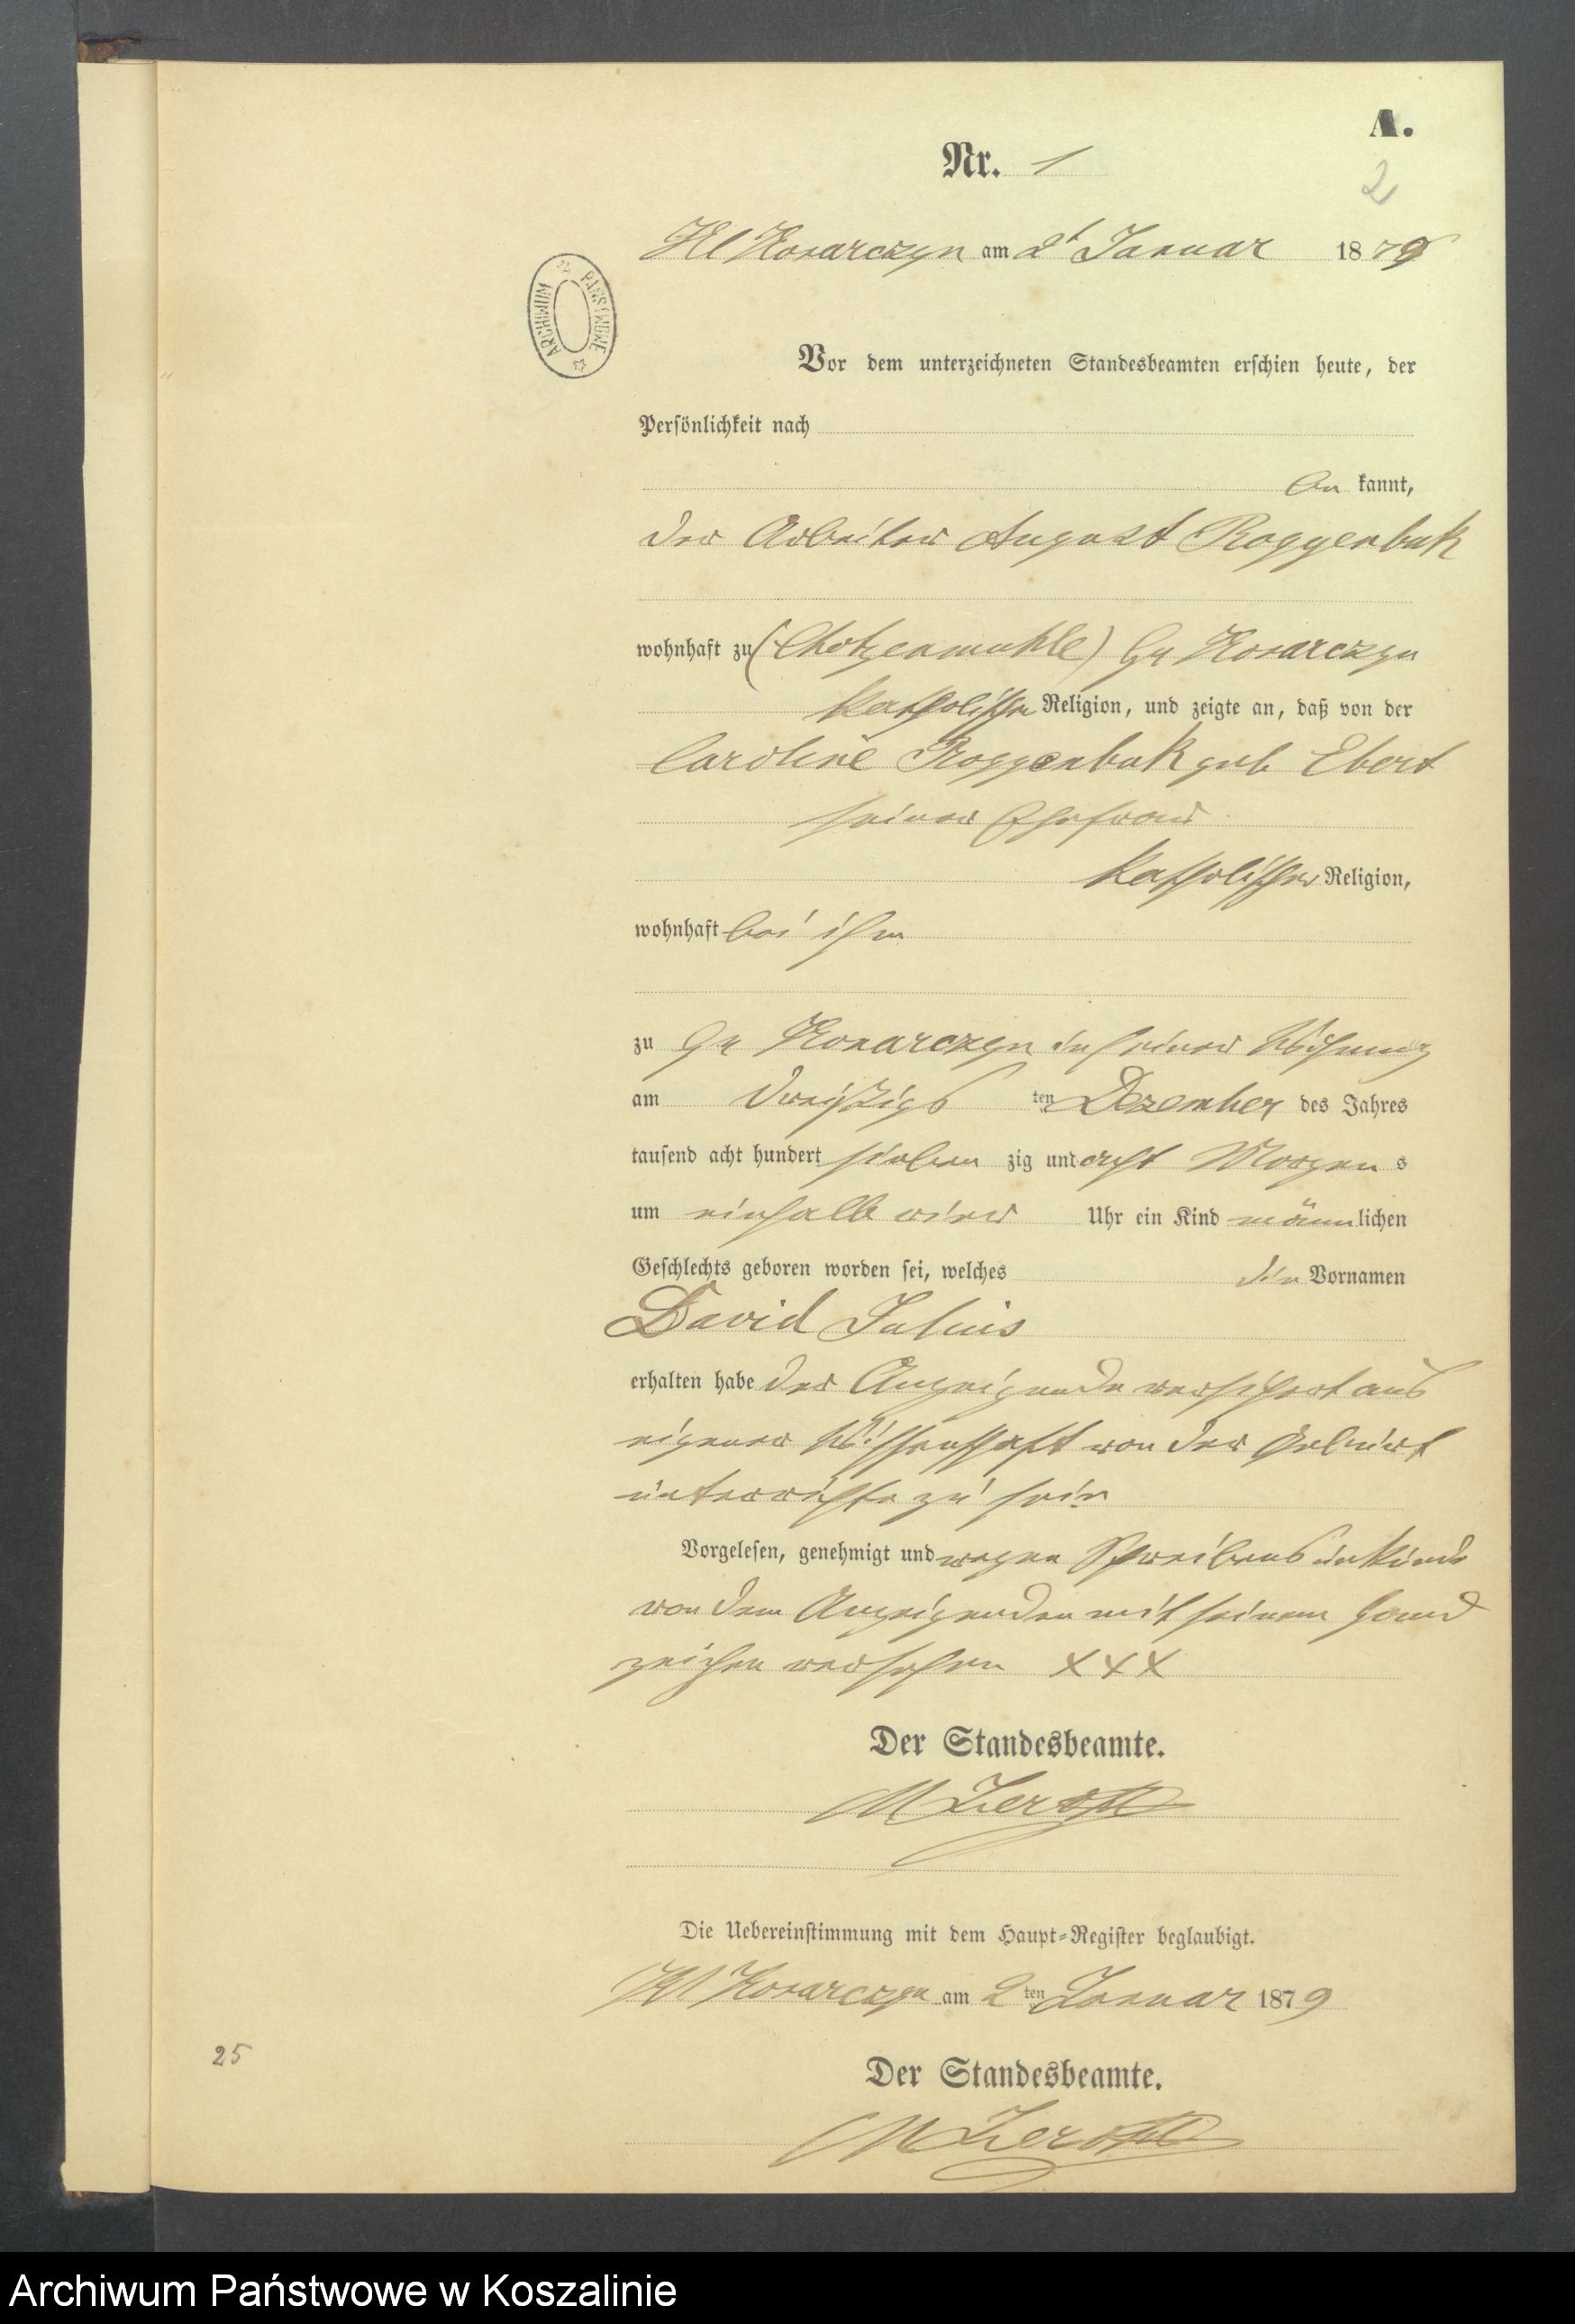 A.
Nr. 1
2
Kl Konarczyn am 2t Januar 1879
ARCHIWUM PAŃSTWOWE
Vor dem unterzeichneten Standesbeamten erschien heute, der
Persönlichkeit nach
be kannt,
der Arbeiter August Roggenbuk
wohnhaft zu (Chotzenmuhle) Gr Konarczyn
katholischer Religion, und zeigte an, daß von der
Caroline Roggenbuk geb Ebert
seiner Ehefrau
katholischer Religion,
wohnhaft bei ihm
zu Gr Konarczyn in seiner Wohnung
am dreißigs ten Dezember des Jahres
tausend acht hundert sieben zig und acht Morgen s
um einhalb vier Uhr ein Kind männlichen
Geschlechts geboren worden sei, welches den Vornamen
David Julius
erhalten habe der Anzeigende versichert aus
eigener Wissenschaft von der Geburt
unterrichte zu sein
Vorgelesen, genehmigt und wegen Schreibens unkunde
von dem Anzeigenden mit seinem Hand
zeichen versehen XXX
Der Standesbeamte.
Die Uebereinstimmung mit dem Haupt-Register beglaubigt.
Kl Konarczyn am 2 ten Januar 1879
25
Der Standesbeamte.
Archiwum Państwowe w Koszalinie